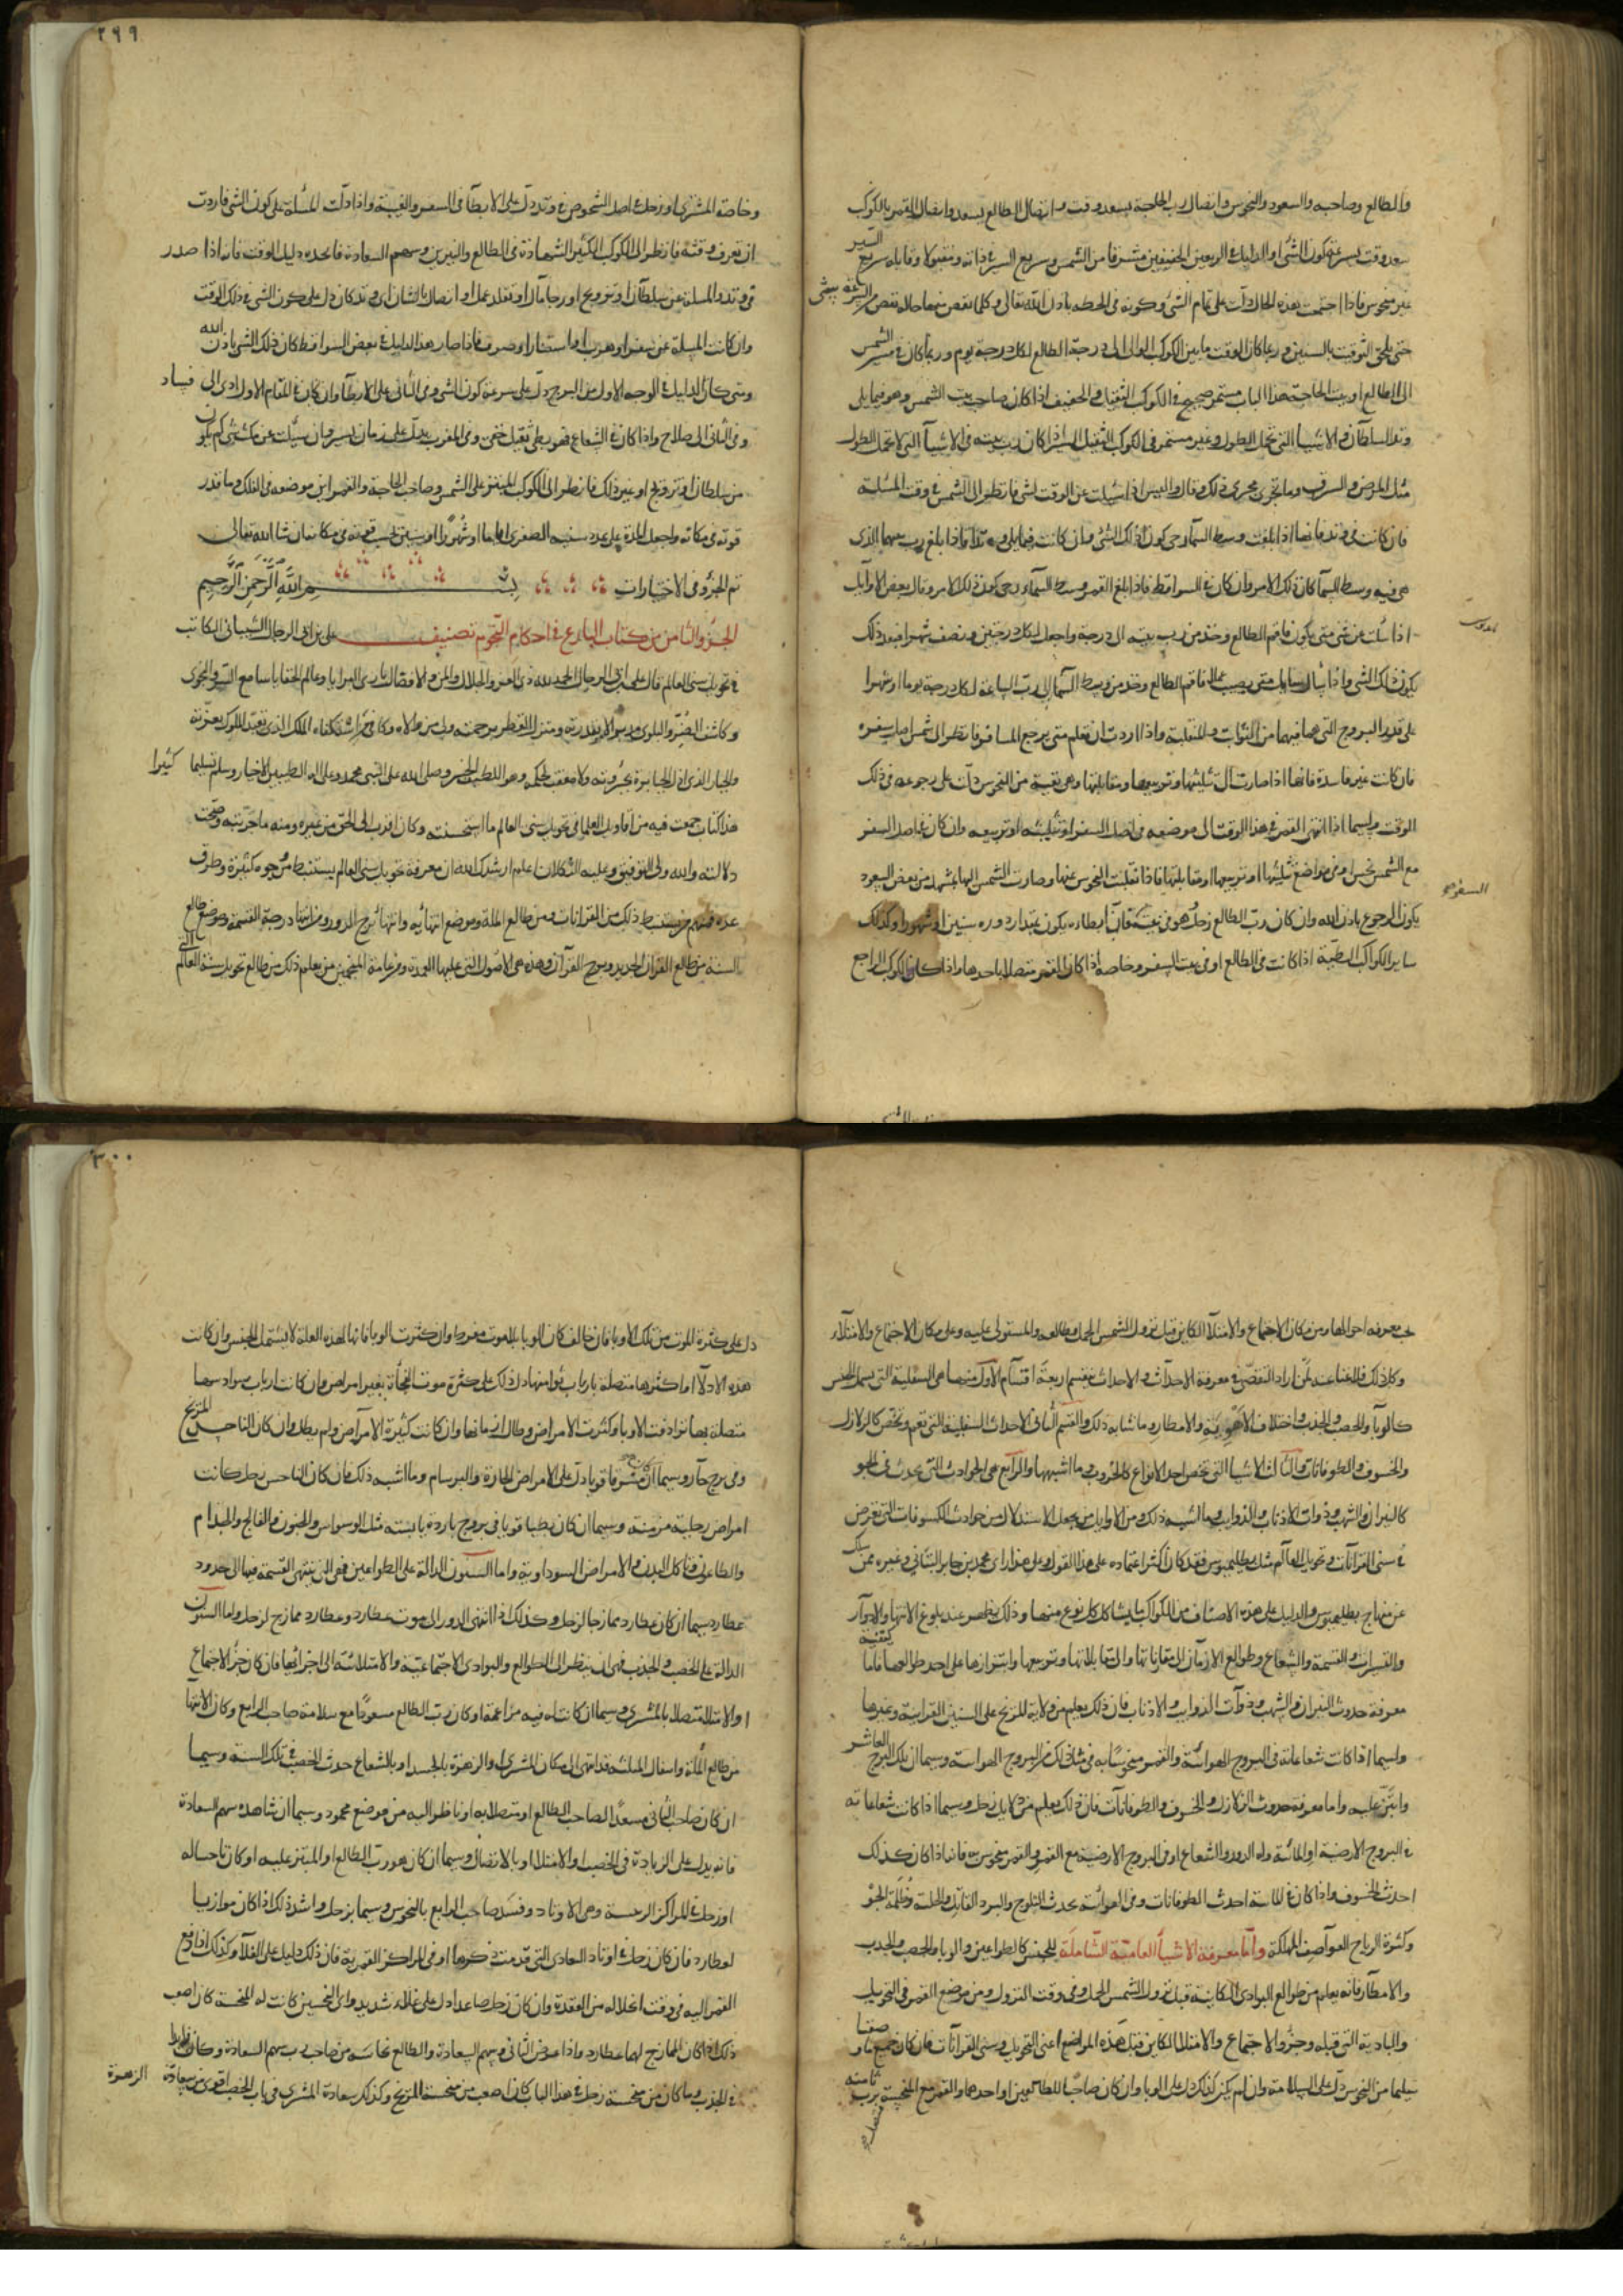 والطالع وصاحبه والسعود والنحوس واتصال رب الحاجة بسعد وقت واتصال الطالع بسعد واتصال القمر بالكوكب
سعد وقت لسرعة كون الشئ او الدليل في الربعين الخفيفين مشرقا من الشمس وسريع السير في ذاته ومقبولا وقابله سريع السير
غير منحوس فاذا اجتمعت هذه الحال دلت على تمام الشئ وكونه في الحظه باذن الله تعالى وكلما نقص منها حاله نقص من السرعة بشئ
حتى يلحق التوقيت بالسنين وربما كان الوقت ما بين الكوكب الوالي الى درجة الطالع لكل درجة يوم وربما كان في مسير الشمس
الى الطالع او بيت الحاجة هذا الباب مستمر صحيح في الكوكب الثقيل وفي الخفيف اذا كان صاحب بيت الشمس وهو فيما يلي
وتد السلطان والاشيا التي تحتمل الطول وغير مستمر في الكوكب الثقيل السير اذا كان رب بيته في الاشيا التي لا تحتمل الطول
مثل المرض والسرق وما يجري مجرى ذلك وقال واليس اذا سئلت عن الوقت لشئ فانظر الى الشمس في وقت المسئلة
فان كانت في وتد فانها اذا بلغت وسط السماء رجي كون ذلك الشئ وان كانت فيما يلي وتدا فاذا بلغ رب بيتها الذي
هي فيه وسط السما كان ذلك الامر وان كان في السواقط فاذا بلغ القمر وسط السماء رجي كون ذلك الامر وقال بعض الاوايل
اذا سئلت عن شئ متى يكون فاقم الطالع وخذ من رب بيته الى درجة واجعل لكل درجتين ونصف شهرا فبعد ذلك
يكون ذلك الشئ واذا سال سايل متى يصيب عملا فاقم الطالع وخذ من وسط السما الى رب الساعة لكل درجة يوما او شهرا
على قدر البروج التي هما فيهما من الثوابت والمنقلبة واذا اردت ان تعلم متى يرجع المسافر فانظر الى شمس اصل سفره
فان كانت غير فاسدة فانها اذا صارت الى تثليثها وتربيعها ومقابلتها وهي نقية من النحوس دلت على رجوعه في ذلك
الوقت ولاسيما اذا انتهى القمر في هذا الوقت الى موضعه في اصل السفر او تثليثه او تربيعه وان كان في اصل السفر
مع الشمس نحس او في مواضع تثليثها او تربيعها او مقابلتها فاذا تقلبت النحوس عنها وصارت الشمس اليها يشهد من بعض السعود السفر
يكون الرجوع باذن الله وان كان رب الطالع زحل وهو في بيت كان ابطاءه يكون بمقدار دوره سنين او شهورا وكذلك
ساير الكواكب البطية اذا كانت في الطالع او في بيت السفر وخاصه اذا كان القمر متصلا باحدها واذا كان الكوكب الراجع
٢٩٩
وخاصة المشتري او زحل في اصل الشخوص في وتد دل على الابطآ في السفر والغيبة واذا دلت المسئلة على كون الشئ فاردت
ان تعرف وقته فانظر الى الكوكب الكثير الشهادة في الطالع والنيرين وسهم السعادة فاتخذه دليل الوقت فانه اذا صدر
في وتد والمسلة عن سلطان او تزويج او رجا مال او تقلد عمل او اتصال بالسلطان او وتد كان دل على كون الشئ في ذلك الوقت
وان كانت المسلة عن سفر او هرب او استتار او صرف فاذا صار هذا الدليل في بعض السواقط كان ذلك الشئ باذن الله
ومتى كان الدليل في الوجه الاول من البرج دل على سرعة كون الشئ وفي الثاني على الابطآ وان كان في المقام الاول ادى الى فساد
وفي الثاني الى صلاح واذا كان في الشعاع فهو بطي ثقيل خفي وفي المغرب يدل على زمان يسير وان سئلت عن مكث شئ كم يكون
من سلطان او تزويج او غير ذلك فانظر الى الكوكب المبتز على الشمس وصاحب الحاجة والقمر اين موضعه في الفلك وما قدر
قوته في مكانه واجعل المدة على عدد سنيه الصغرى اياما او شهورا او سنين بحسب قوته في مكانه ان شا الله تعالى
تم الجزؤ في الاختيارات بسم الله الرحمن الرحيم
الجزؤ الثامن من كتاب البارع في احكام النجوم تصنيف علي بن ابي الرجال الشيباني الكاتب
في تحويل سني العالم قال علي بن ابي الرجال الحمد لله ذي العز والجلال والمن والافضال باري البرايا وعالم الخفايا سامع السر والنجوى
وكاشف الضر والبلوى مدبر الامور بقدرته ومنزل القطر برحمته ولي من والاه وكافي من استكفاه الملك الذي تعبد الملوك بعزته
والجبار الذي اذل الجبابرة بجبروته ولا معقب لحكمه وهو اللطيف الخبير وصلى الله على النبي محمد وعلى اله الطيبين الاخيار وسلم تسليما كثيرا
هذا كتاب جمعت فيه من اقاويل العلما في تحويل سني العالم ما استحسنته وكان اقرب الى الحق من غيره ومنه ما جربته وصحت
دلالته والله ولي التوفيق وعليه التكلان اعلم ارشدك الله ان معرفة تحويل سني العالم يستنبط من وجوه كثيرة وطرق
عدة فمنهم من يستنبط ذلك من القرانات ومن طالع الملة وموضع انتهائه وانتهاء برج الدور ومن انتها درجة القسمة وموضع طالع
السنة من طالع القران الجديد وبرج القرآن وهذه هي الاصول التي عليها العمدة ومن عامة المنجمين من يعلم ذلك من طالع تحويل سنة العالم التي
٣٠٠
يجب معرفة احوالها ومن مكان الاجتماع والامتلآ الكاين قبل نزول الشمس الحمل وطالعه والمستولي عليه وعلى مكان الاجتماع والامتلآء
وكل ذلك فلا غنا عند من اراد التقصي في معرفة الاحداث والاحداث تنقسم اربعة اقسام الاول منها هي السفلية التي تشمل الجنس
كالوبآ والخصب والجدب واختلاف الاهوية والامطار وما شابه ذلك والقسم الثاني الاحداث السفلية التي تعم وتخص كالزلازل
والخسوف والطوفانات والثالث الاشيا التي تخص احد الانواع كالحروب وما اشبهها والرابع هي الحوادث التي تحدث في الجو
كالنيران والشهب وذوات الاذناب والذوايب وما اشبه ذلك ومن الاوايل من يجعل الاستدلال من حوادث الكسوفات التي تعرض
في سني القرانات وتحويل العالم مثل بطليموس فقد كان اكثر اعتماده على هذا القول وعلى هذا راى محمد بن جابر البتاني وغيره ممن سلك
عن منهاج بطليموس والدليل على هذه الاصناف من الكواكب ما يشاكل كل نوع منها وذلك يظهر عند بلوغ الانتها والادوار
والتسيرات والقسمة والشعاع وطوالع الازمان الى مقارناتها والى مقابلاتها وتربيعها وابتزازها على احد طوالعها فاما كيفية
معرفة حدوث النيران والشهب وذوات الذوايب والاذناب فان ذلك يعلم من ولاية المريخ على السنين القرانية وغيرها
ولاسيما اذا كانت شعاعاته في البروج الهوائية والقمر منحوسا به في مثل ذلك من البروج الهوائية وسيما ان ملك البرج العاشر
وابتز عليه واما معرفة حدوث الزلازل والخسوف والطوفانات فان ذلك يعلم من دلايل زحل وسيما اذا كانت شعاعاته
في البروج الارضية او المائية وله الدور والشعاع او في البروج الارضية مع القمر والقمر منحوس به فانه اذا كان كذلك
احدث الخسوف واذا كان في المائية احدث الطوفانات وفي الهوائية يحدث الثلوج والبرد القاتل والجليد وظلمة الجو
وكثرة الرياح العواصف المهلكة واما معرفة الاشياء العامية الشاملة للجنس كالطواعين والوبا والخصب والجدب
والامطار فانه يعلم من طوالع البوادي الكاينة قبل نزول الشمس الحمل وفي وقت النزول ومن موضع القمر في التحويل
والبادية التي قبله وجزؤ الاجتماع والامتلا الكاين قبل هذه المواضع اعني التحويل وسني القرانات فان كان جميع ما وصفنا
سليما من النحوس دل على السلامة وان لم يكن كذلك دل على الوبا وان كان صاحبا للطالعين او احدهما والقمر مع المنحسة برب ثامنه
دل على كثرة الموت من تلك الاوبا فان خالف كان الوبا بلا موت مفرط وان كثرت الوبا فانها لهذه العلة لا يشتمل الجنس وان كانت
هذه الادلآ او اكثرها متصلة بارباب ثوامنها دل ذلك على كثرة موت الفجأة بغير امراض وان كانت ارباب سوادسها
متصلة بها ترادفت الاوبا وكثرت الامراض وطال ازمانها وان كانت كثيرة الامراض ولم يطل وان كان الناحس المريخ
وفي برج حار وسيما ان كان مشرقا قويا دل على الامراض الحارة والبرسام وما اشبه ذلك فان كان الناحس زحل كانت
امراض زحلية مزمنة وسيما ان كان بطيا قويا في بروج باردة يابسة مثل الوسواس والجنون والفالج والجذام
والطاعون وتآكل البدن والامراض السوداوية واما السنون الدالة على الطواعين فهي التي ينتهي القسمة فيها الى حدود
عطارد سيما ان كان عطارد ممازجا لزحل وكذلك اذا انتهى الدور الى موت عطارد وعطارد ممازج لزحل واما السنون
الدالة على الخصب والجذب فهي ان ينظر الى الطوالع والبوادي الاجتماعية والامتلائية الى اجزائها فان كان جزؤ الاجتماع
او الامتلا متصلا بالمشتري وسيما ان كانت له فيه مزاعمة او كان رب الطالع مسعودا مع سلامة صاحب الرابع وكان الانتها
من طالع الملة وانتقال المثلثة قد انتهى الى مكان المشتري او الزهرة بالجسد او بالشعاع حدث الخصب في تلك السنة وسيما
ان كان صاحب الثاني مسعدا لصاحب الطالع او متصلا به او ناظرا اليه من موضع محمود وسيما ان شاهده سهم السعادة
فانه يدل على الزيادة في الخصب او الامتلا او بالاتصال وسيما ان كان هو رب الطالع او المبتز عليه او كان ناحساله
او زحل في المراكز الرحية وهي الاوتاد وفسد صاحب الرابع بالنحوس وسيما بزحل واشد ذلك اذا كان موازيا
لعطارد فان كان زحل في اوتاد البوادي التي قدمت ذكرها او في المراكز القمرية فان ذلك دليل على الغلآ وكذلك اذا دفع
القمر اليه في وقت انحلاله من العقدة وان كان زحل صاعدا دل على غلاء شديد واي النحسين كانت له المنحسة كان اصعب
ذلك اذا كان الممازج لهما عطارد واذا عرض الثاني وسهم السعادة والطالع نحاسة من صاحب رب سهم السعادة وكان
في الجذب وما كان من منحسة زحل في هذا الباب كان اصعب من منحسة المريخ وكذلك سعادة المشتري في باب الخصب اقوى من سعادة الزهرة